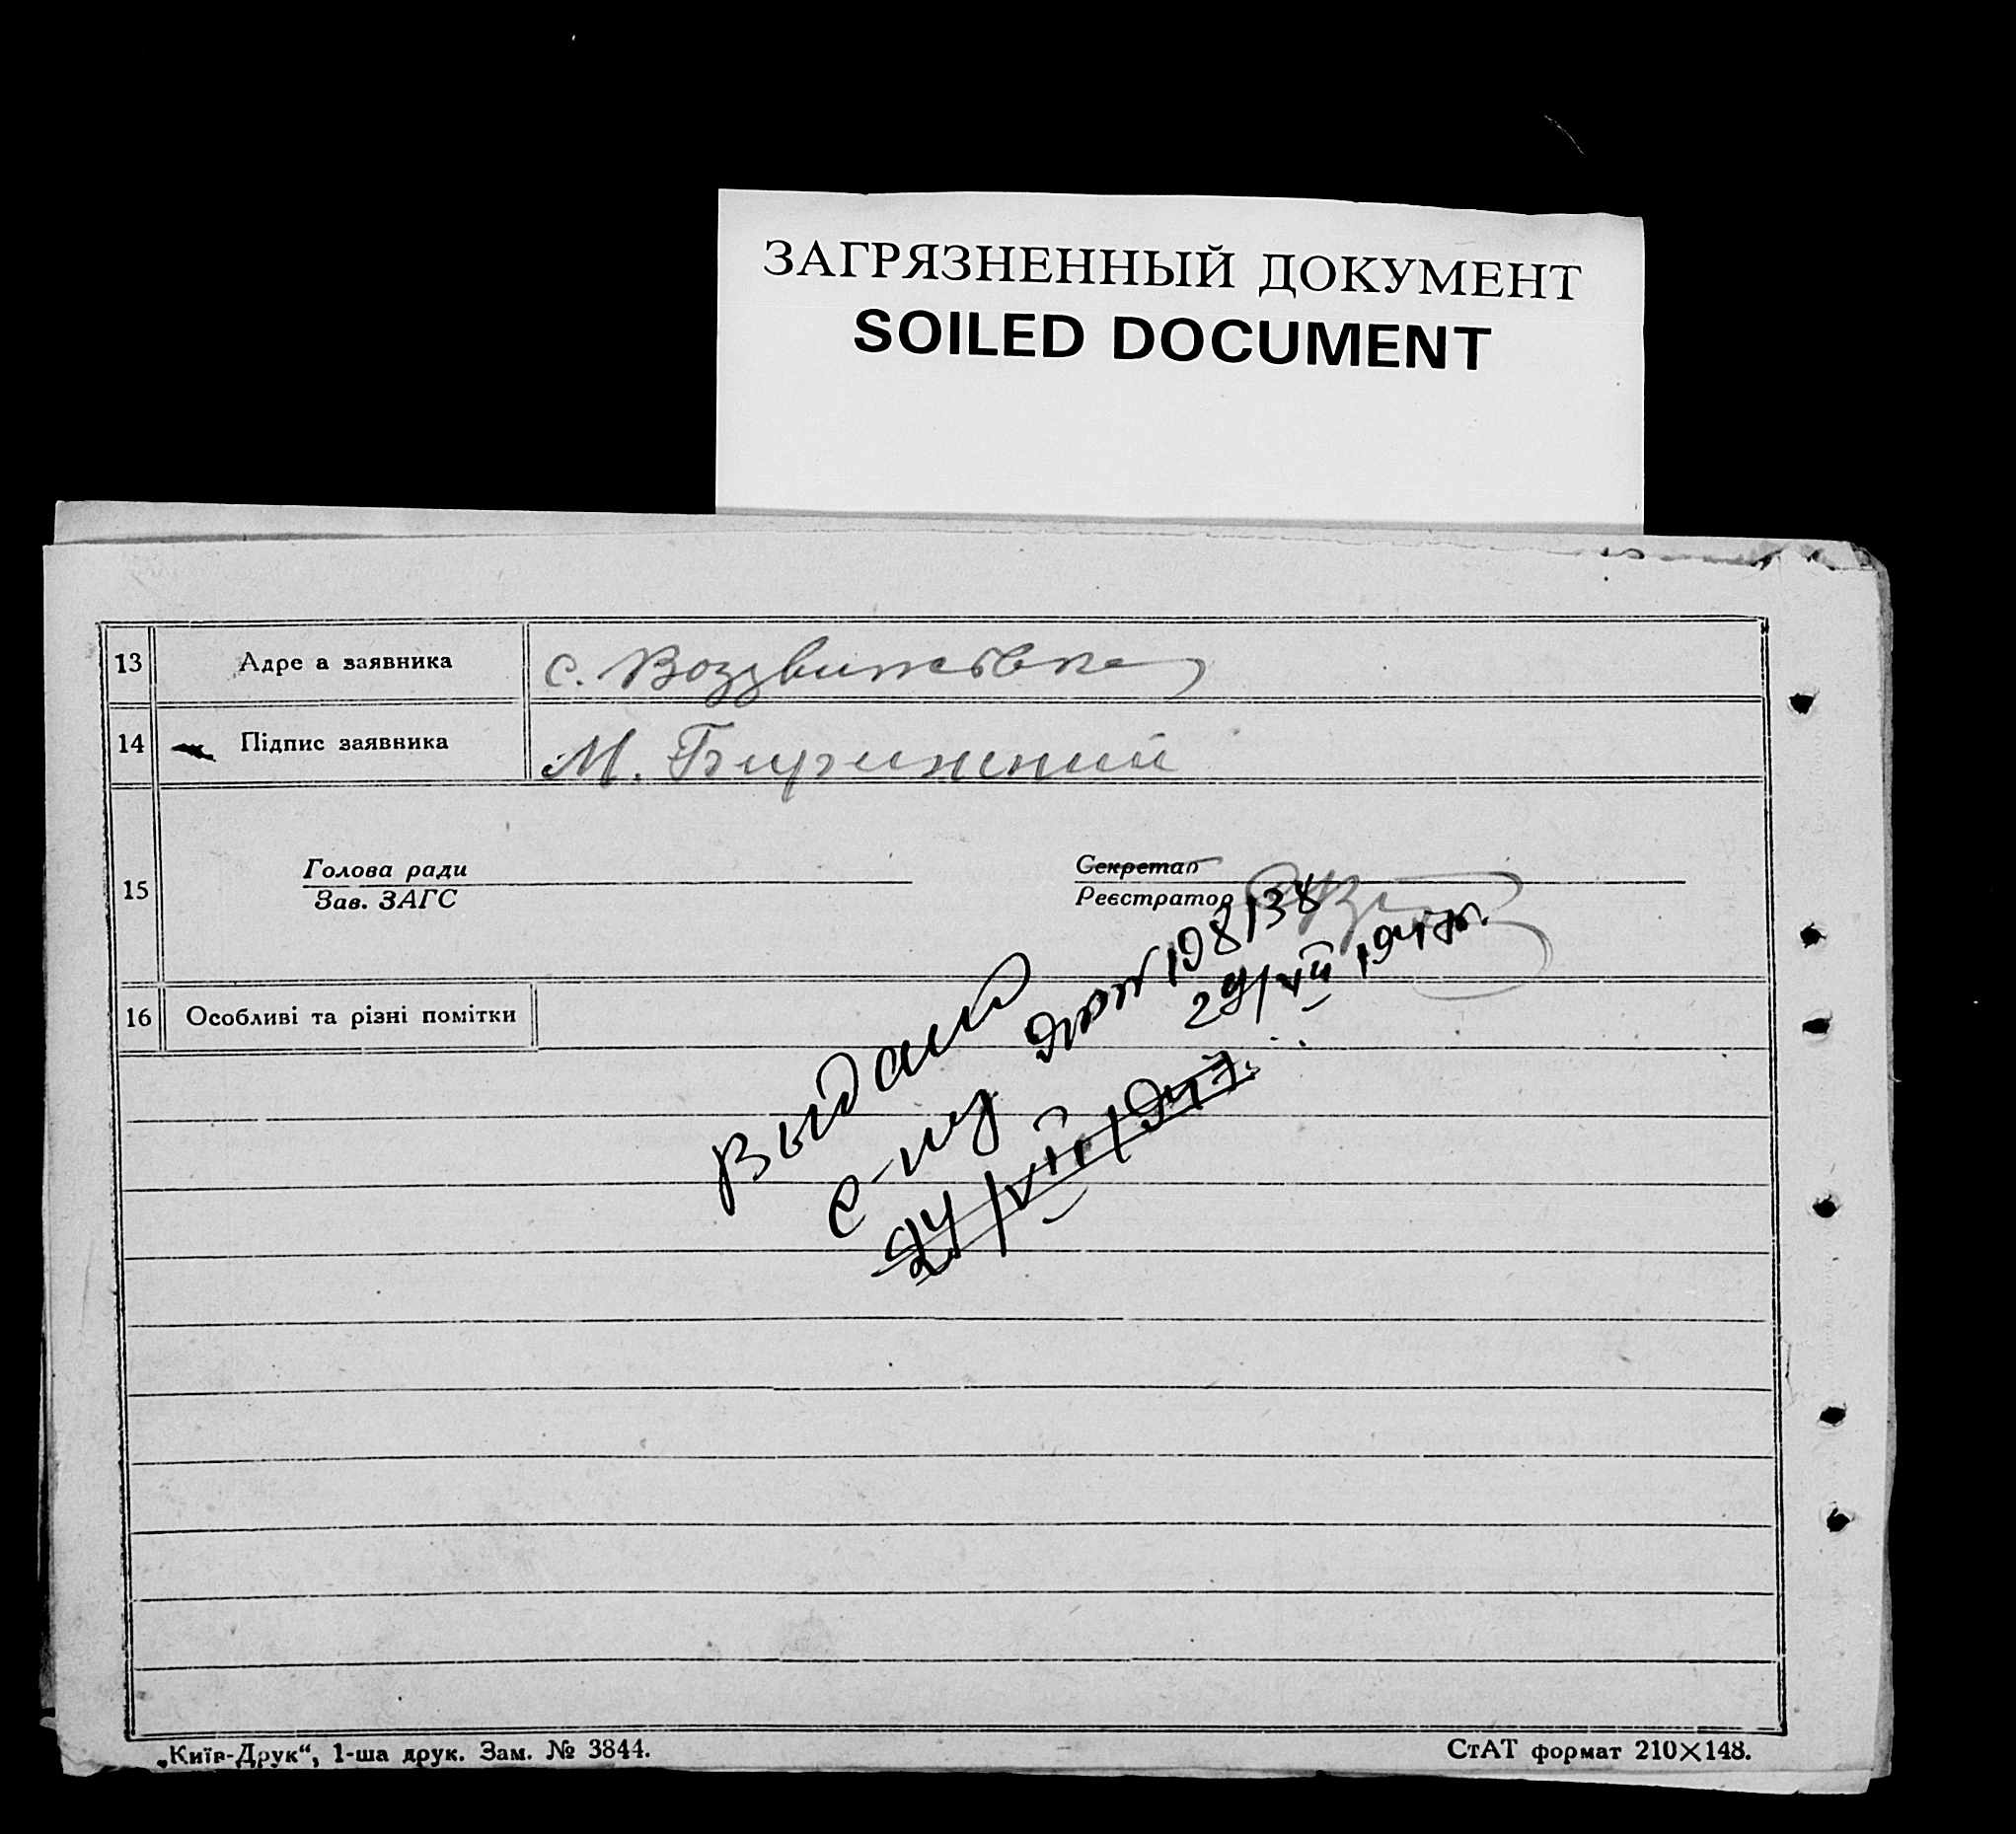 ЗАГРЯЗНЕННЫЙ ДОКУМЕНТ
SOILED DOCUMENT
13 Адре а заявника с. Воздвижевка
14 Підпис заявника М.
15 Голова ради Секретар
Зав. ЗАГС Реєстратор
16 Особливі та різні помітки
Выдан
с-ву 198138
29/VII 1947г.
24/VII 1947.
„Київ-Друк“, 1-ша друк. Зам. № 3844.
СтАТ формат 210×148.